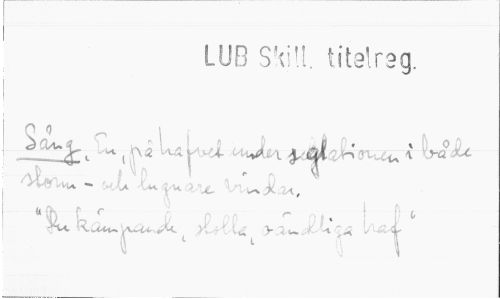 LUB Skill. titelreg.
Sång, En, på hafvet under seglationen i både
storm- och lugnare vindar.
"Du kämpande, stolta, oändliga haf"